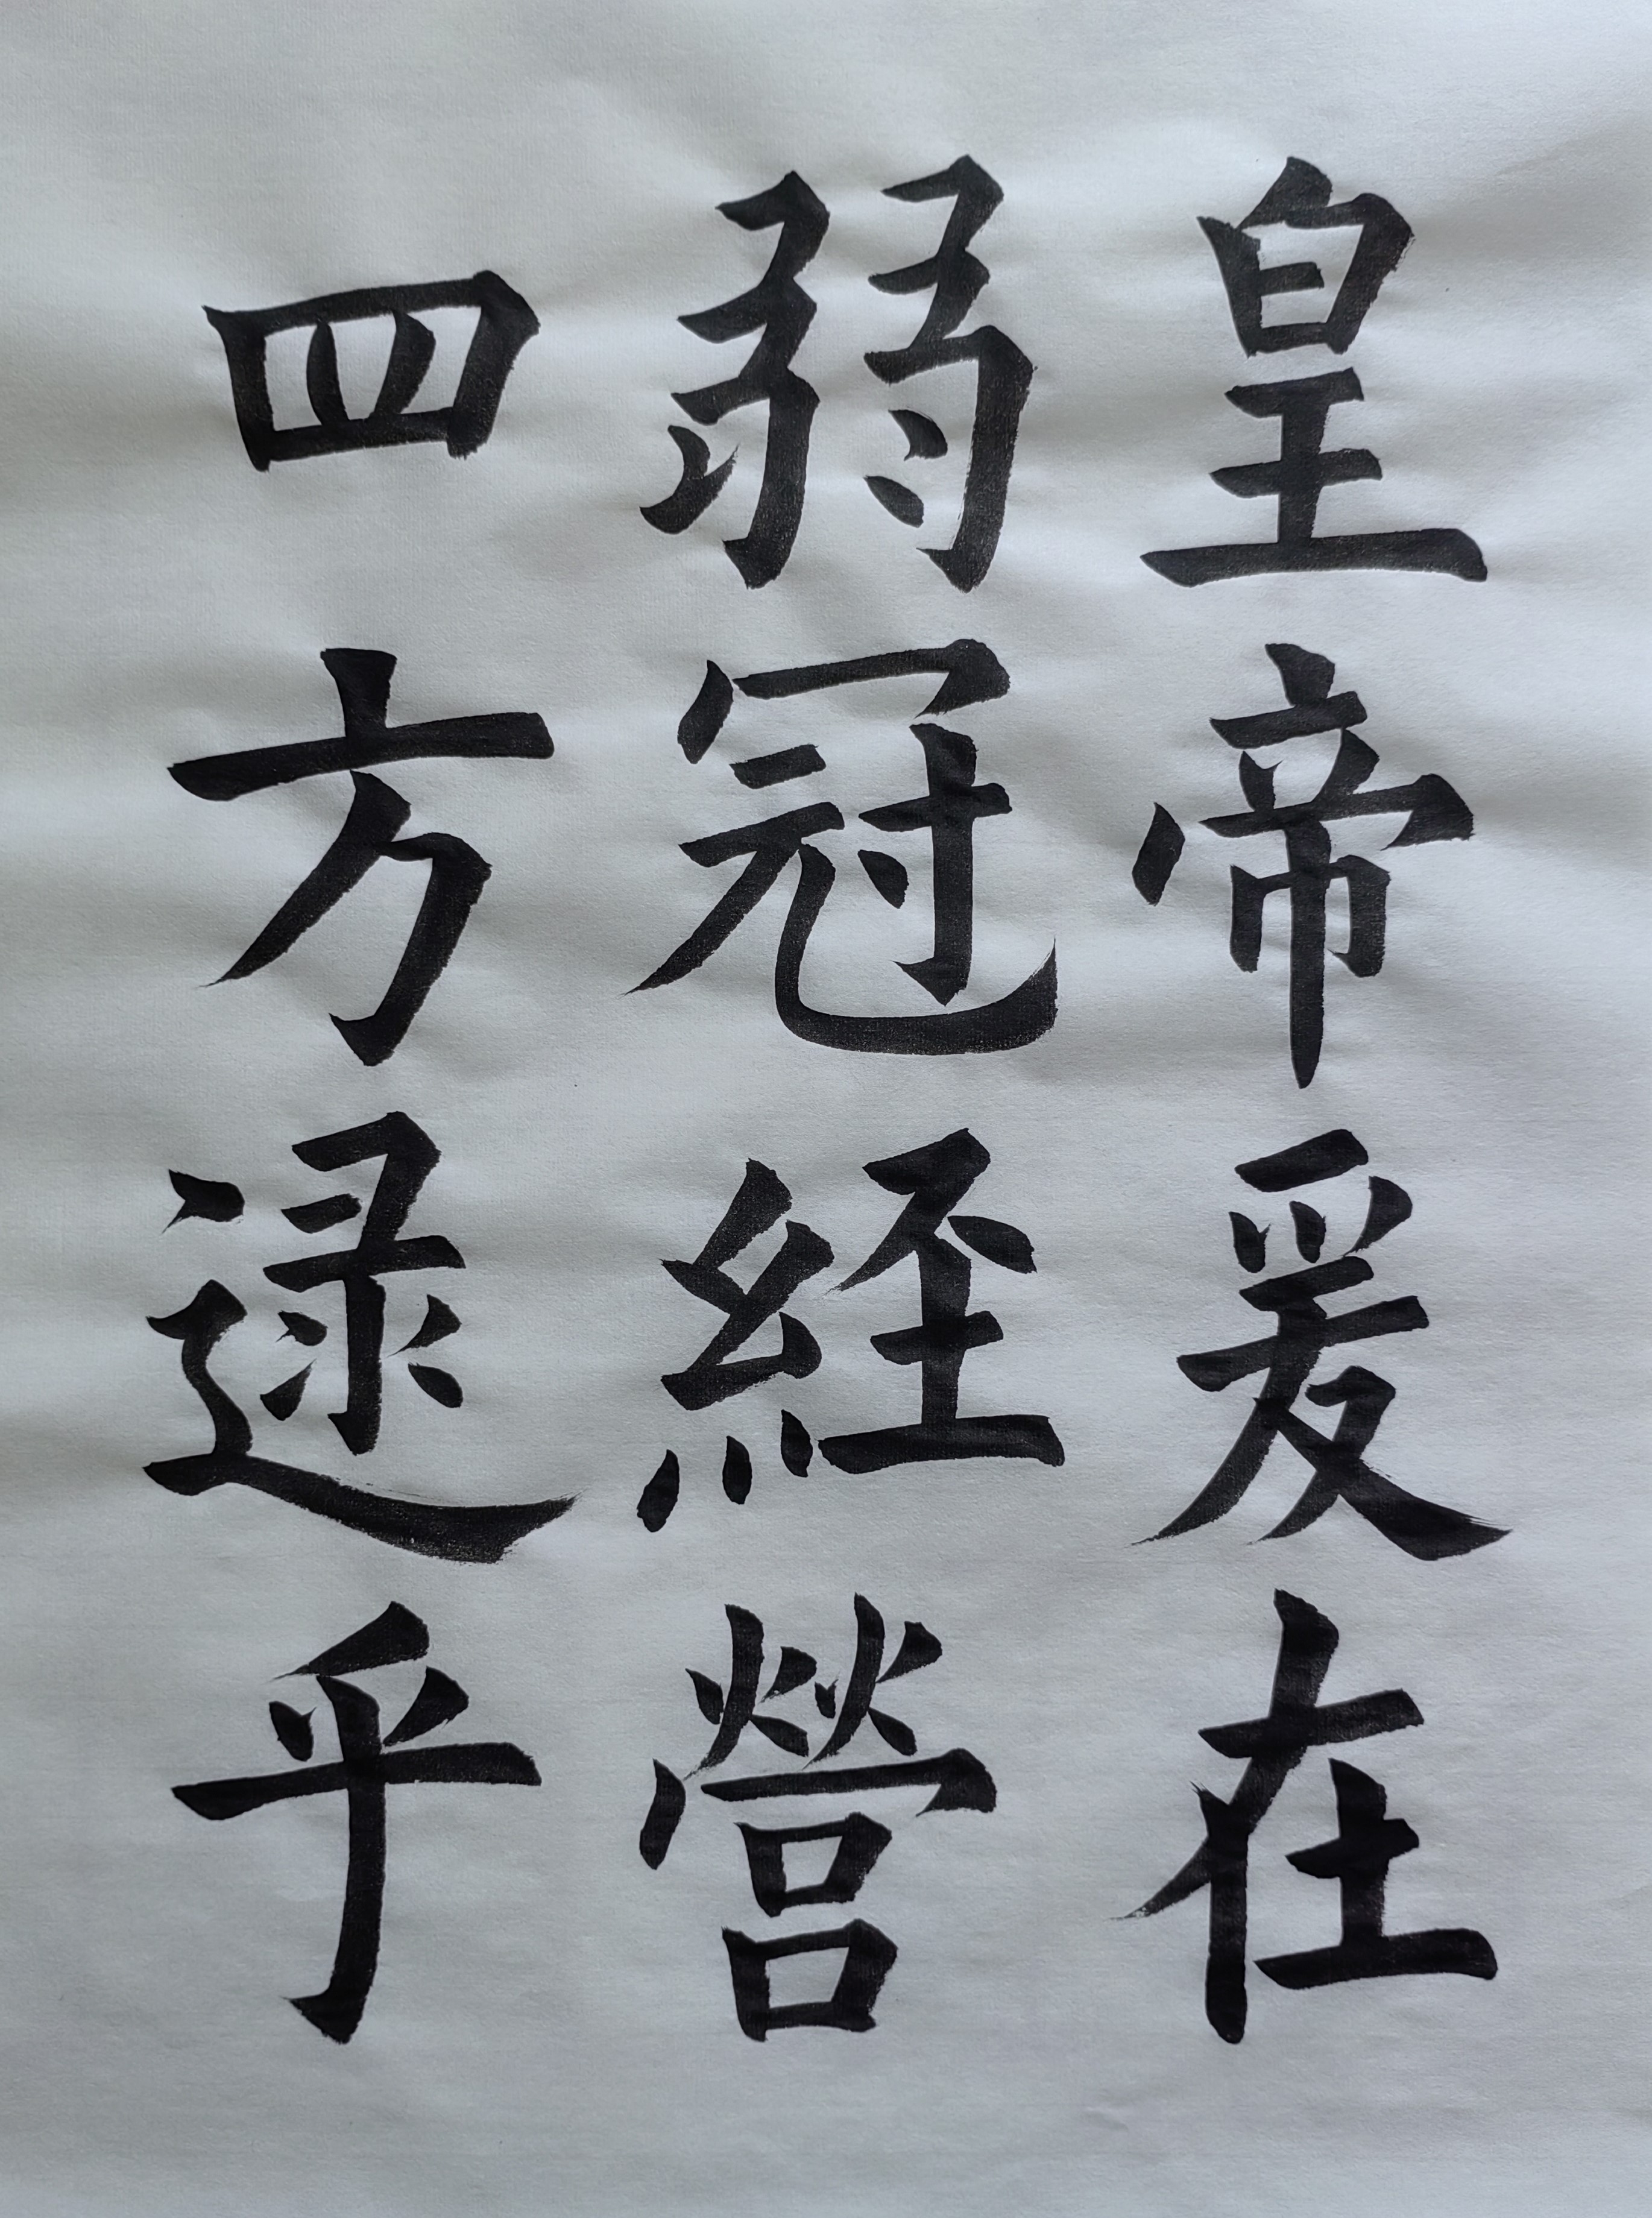 皇帝爰在
弱冠経營
四方逯乎